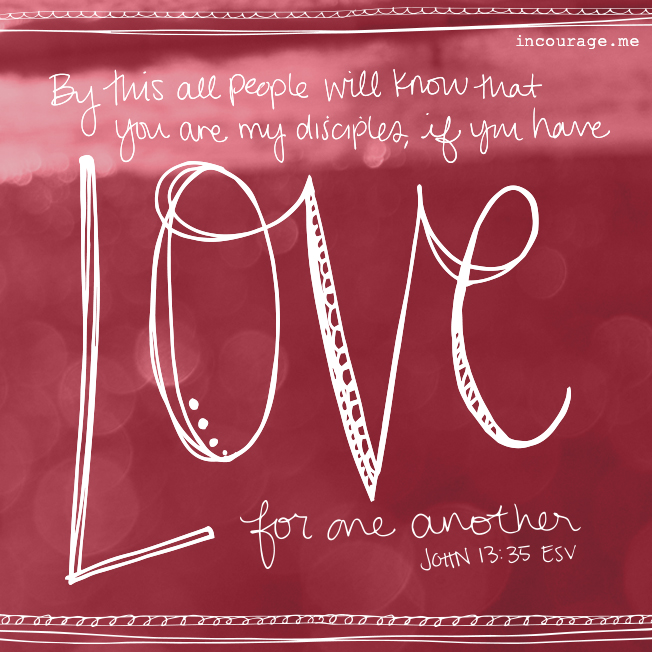 incourage.me
By this all people will know that
you are my disciples, if you have
LOVE
for one another
JOHN 13:35 ESV